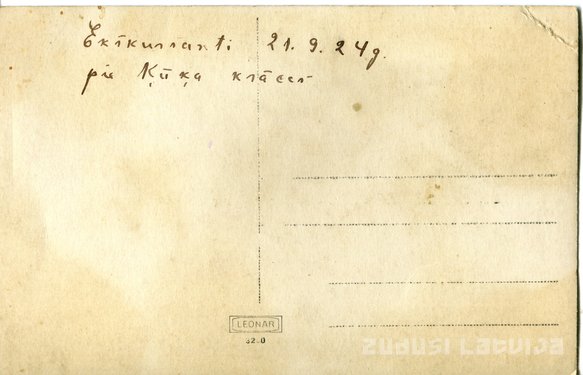 Ekskursanti 21.9.24g.
pie Ķūķa krāces
LEONAR
ZUDUSI LATVIJA